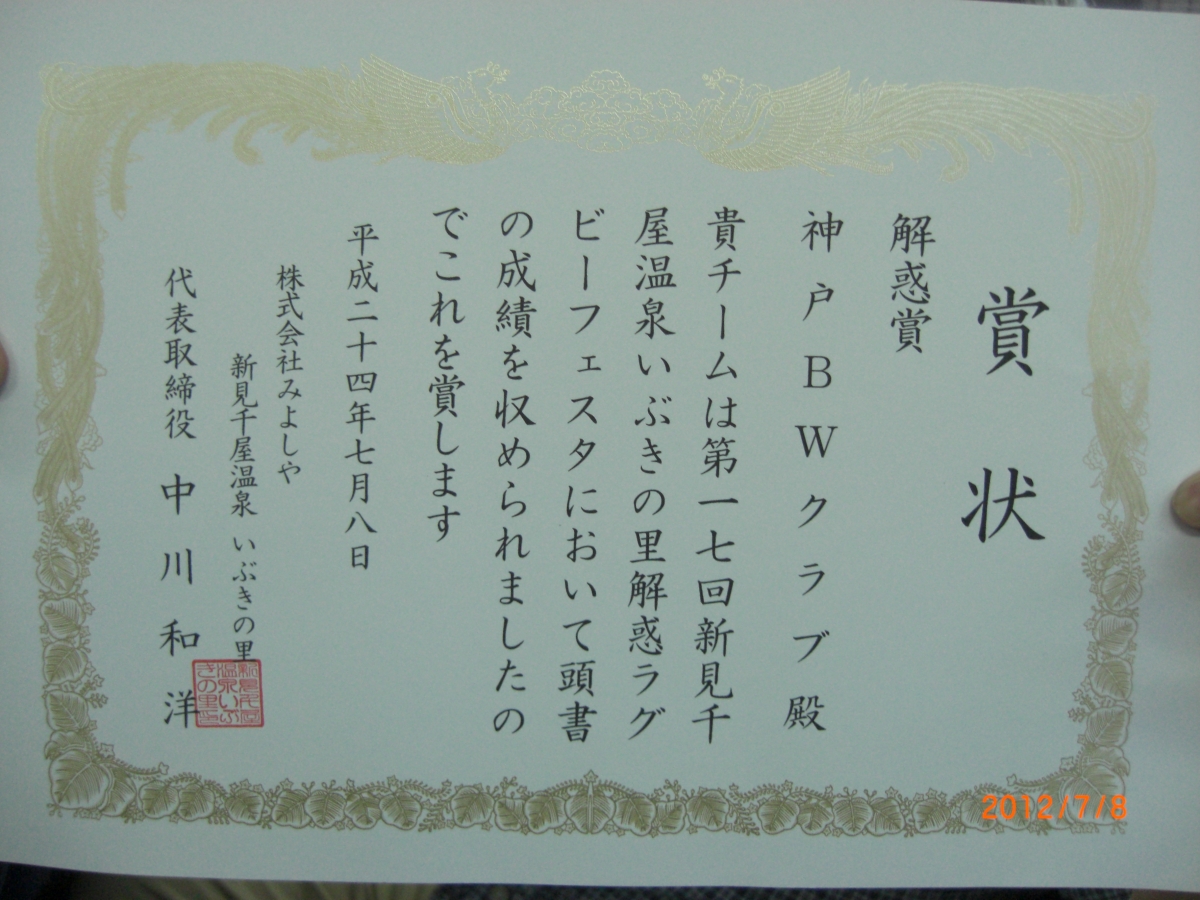 賞状
解惑賞
神戸BWクラブ殿
貴チームは第一七回新見千
屋温泉いぶきの里解惑ラグ
ビーフェスタにおいて頭書
の成績を収められましたの
でこれを賞します
平成二十四年七月八日
株式会社みよしや
新見千屋温泉 いぶきの里
代表取締役 中川和洋
2012/7/8